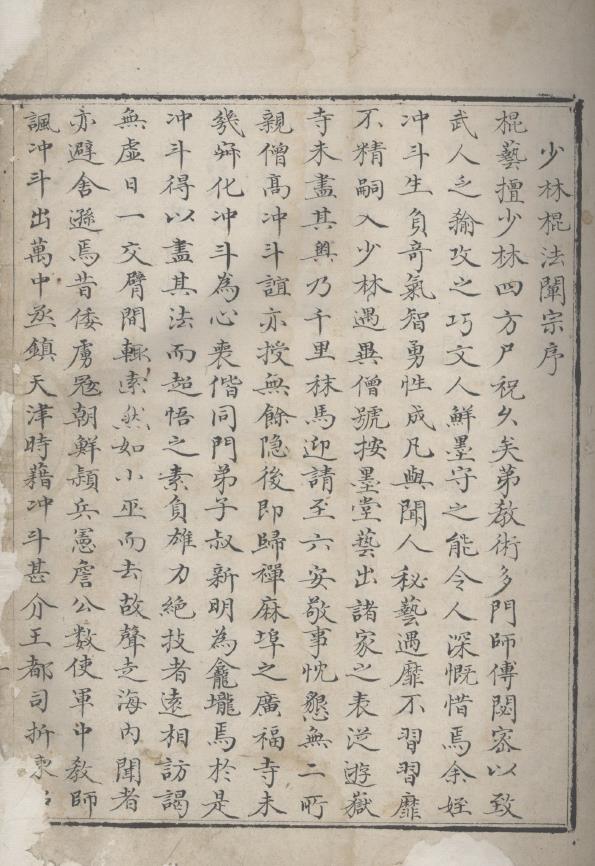 少林棍法闡宗序
棍藝擅少林四方尸祝久矣第敎術多門師傅閟密以致
武人乏輸攻之巧文人鮮墨守之能令人深慨惜焉余姪
冲斗生負奇氣智勇性成凡與聞人秘藝遇靡不習習靡
不精嗣入少林遇異僧號按墨堂藝出諸家之表從遊嶽
寺未盡其奧乃千里秣馬迎請至六安敬事忱懇無二所
親僧髙冲斗誼亦授無餘隐後即歸禪麻埠之廣福寺未
幾化冲斗為心喪偕同門弟子叔新明為龕壠焉於是
冲斗得以盡其法而超悟之素負雄力絶技者遠相訪謁
無虛日一交臂間輙索然如小巫而去故聲走海内聞者
亦避舍遜焉昔倭虜冦朝鮮頴兵憲詹公數使軍中敎師
諷冲斗出萬中丞鎮天津時藉冲斗甚介王都司折柬